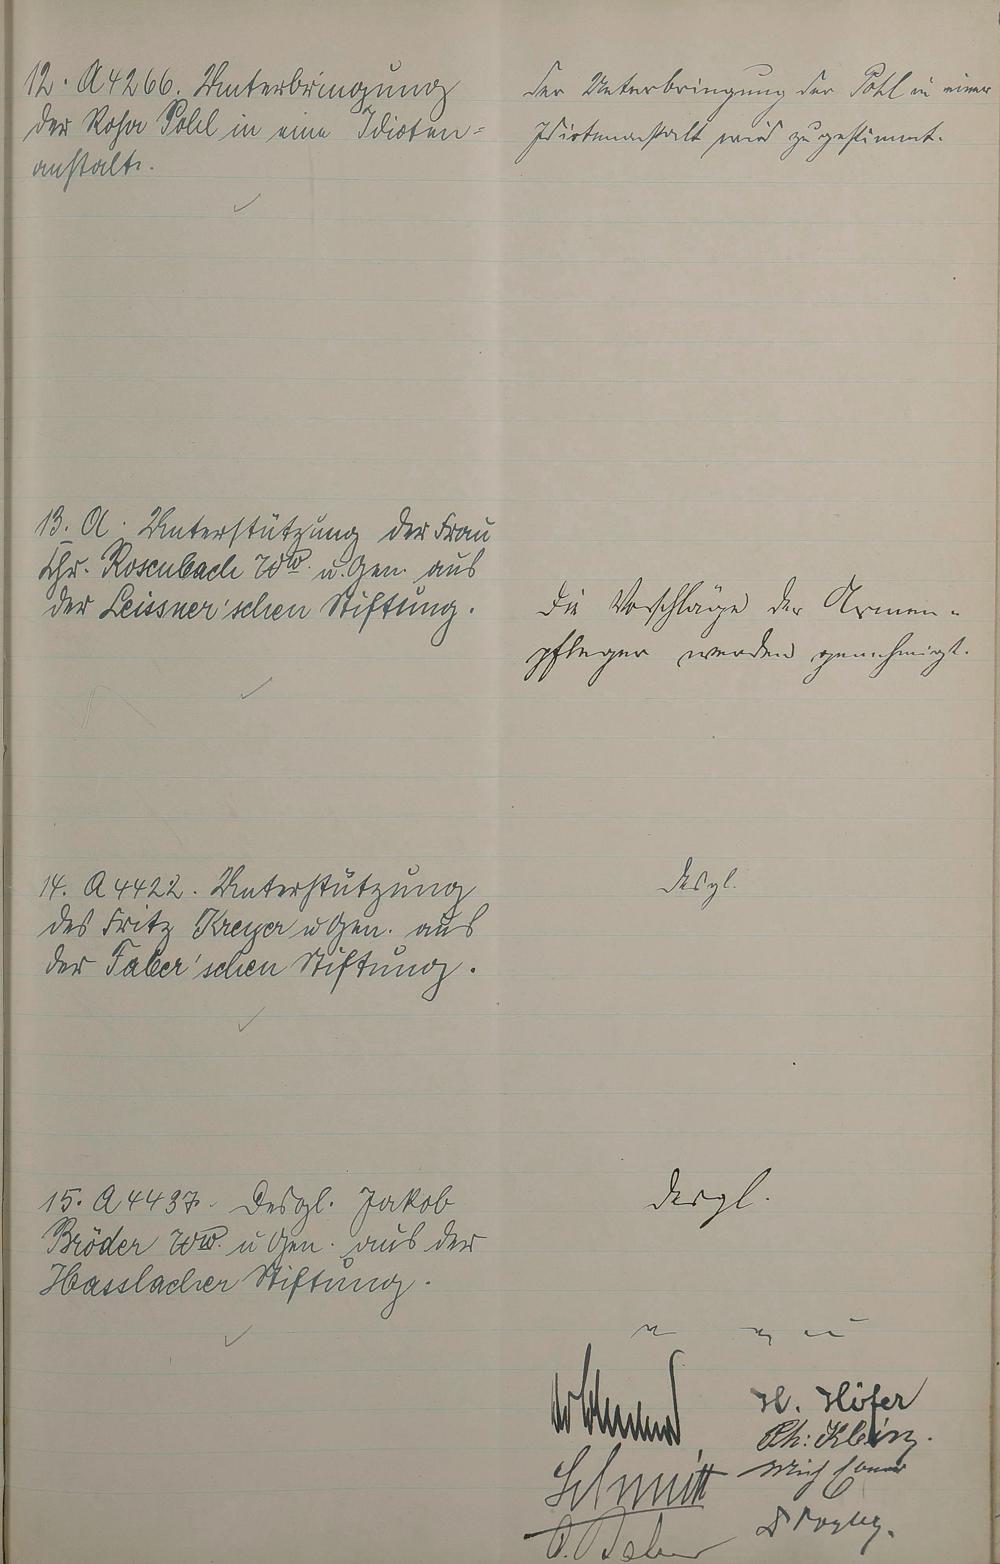 12. A 4266. Unterbringung
der Rosa Pohl in eine Idioten=
anstalt.
Der Unterbringung der Pohl in einer
Idiotenanstalt wird zugestimmt.
13. A. Unterstützung der Frau
Chr. Rosenbach Ww. u. Gen. aus
der Leissner'schen Stiftung.
Die Vorschläge der Armen-
pfleger werden genehmigt.
14. A 4422. Unterstützung
des Fritz Kreyer u Gen. aus
der Faber'schen Stiftung.
desgl.
15. A 4437. Desgl. Jakob
Bröder Ww. u Gen. aus der
Hasslacher Stiftung.
desgl.
H. Höfer
Ph:
Schmitt